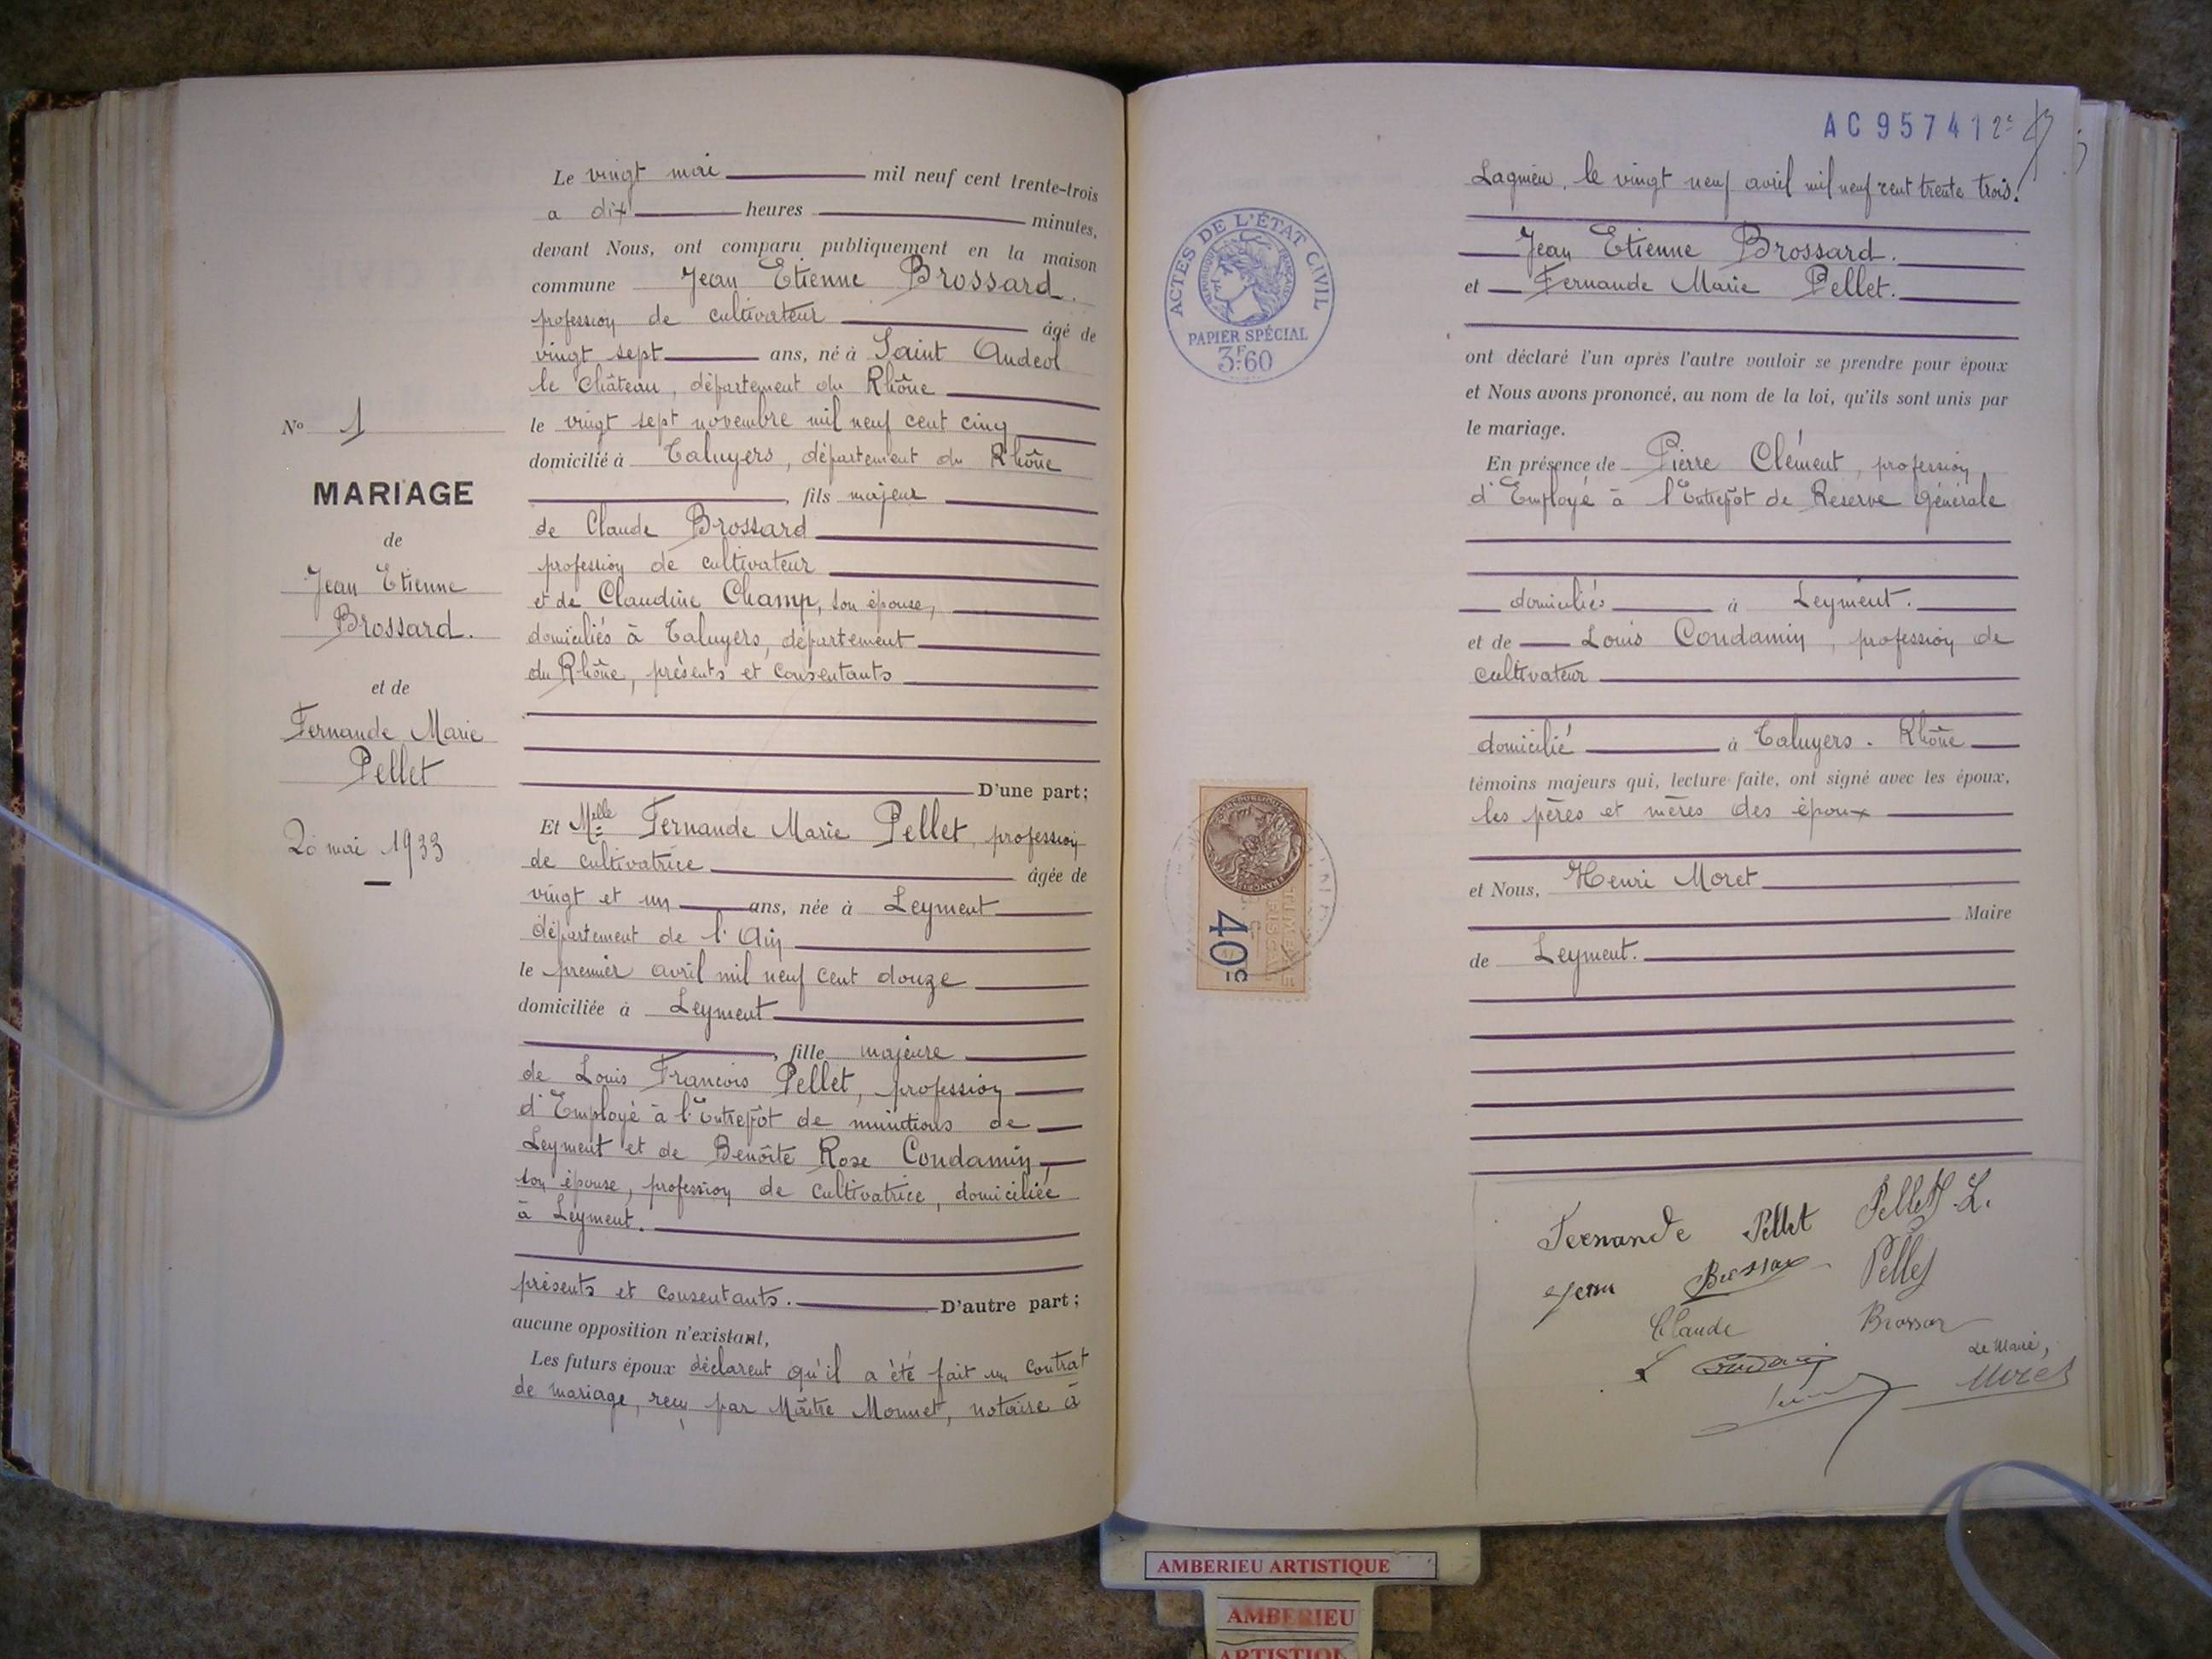 Le vingt mai mil neuf cent trente-trois
a dix heures minutes,
devant Nous, ont comparu publiquement en la maison
commune Jean Etienne Brossard.
profession de cultivateur âgé de
vingt sept ans, né à Saint Andeol
le Château, département du Rhône
le vingt sept novembre mil neuf cent cinq
domicilié à Taluyers, département du Rhône
, fils majeur
de Claude Brossard
profession de cultivateur
et de Claudine Champ, son épouse,
domiciliés à Taluyers, département
du Rhône, présents et consentants
D'une part;
Et Melle Fernande Marie Pellet, profession
de cultivatrice âgée de
vingt et un ans, née à Leyment
département de l'Ain
le premier avril mil neuf cent douze
domiciliée à Leyment
, fille majeure
de Louis François Pellet, profession
d'Employé à l'Entrepôt de munitions de
Leyment et de Benoîte Rose Condamin,
son épouse, profession de cultivatrice, domiciliée
à Leyment.
présents et consentants. D'autre part;
aucune opposition n'existant,
Les futurs époux déclarent qu'il a été fait un contrat
de mariage, reçu par Maître Monnet, notaire à
No 1
MARIAGE
de
Jean Etienne
Brossard.
et de
Fernande Marie
Pellet
20 mai 1933
AC957412
Lagnieu, le vingt neuf avril mil neuf cent trente trois.
Jean Etienne Brossard.
et Fernande Marie Pellet.
ont déclaré l'un après l'autre vouloir se prendre pour époux
et Nous avons prononcé, au nom de la loi, qu'ils sont unis par
le mariage.
En présence de Pierre Clément, profession
d'Employé à l'Entrepôt de Reserve Générale
domiciliés à Leyment.
et de Louis Condamin, profession de
cultivateur
domicilié à Taluyers. Rhône
témoins majeurs qui, lecture faite, ont signé avec les époux,
les pères et mères des époux
et Nous, Henri Moret
Maire
de Leyment.
Fernande Pellet Pellet L.
Jean Brossar Pellet
Claude Brossar
L Condamin Le Maire,
Moret
ACTES DE L'ÉTAT CIVIL
RÉPUBLIQUE FRANÇAISE
PAPIER SPÉCIAL
3F.60
40c
AMBERIEU ARTISTIQUE
AMBERIEU
ARTISTIQ